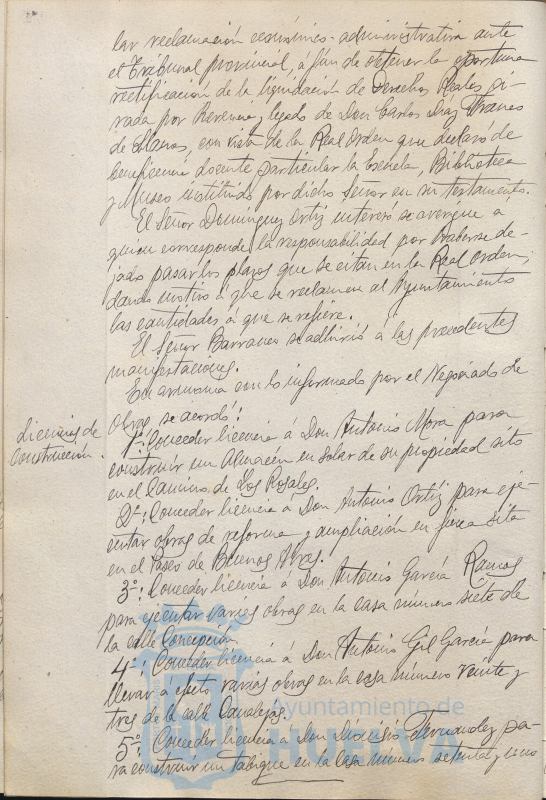 lar reclamación económico-administrativa ante
el Tribunal provincial, á fin de obtener la oportuna
rectificación de la liquidación de Derechos Reales gi-
rada por herencia y legado de Don Carlos Diaz Franco
de Llanos, con vista de la Real Orden que declaró de
beneficencia docente particular la Escuela, Biblioteca
y Museo instituidas por dicho Señor en su testamento.
El Señor Dominguez Ortiz interesó se averigüe á
quien corresponde la responsabilidad por haberse de-
jado pasar los plazos que se citan en la Real Orden,
dando motivo á que se reclamen al Ayuntamiento
las cantidades á que se refiere.
El Señor Barranco se adhirió á las precedentes
manifestaciones.
Licencias de
Construcción.
En armonia con lo informado por el Negociado de
Obras, se acordó:
1º: Conceder licencia á Don Antonio Mora para
construir un Almacén en solar de su propiedad sito
en el Camino de Los Rosales.
2º: Conceder licencia á Don Antonio Ortiz para eje-
cutar obras de reforma y ampliación en finca sita
en el Paseo de Buenos Aires.
3º: Conceder licencia á Don Antonio García Ramos
para ejecutar varias obras en la casa número siete de
la calle Concepción.
4º: Conceder licencia á Don Antonio Gil García para
llevar á efecto varias obras en la casa número veinte y
tres de la calle Canalejas.
5º: Conceder licencia á Don Dionisio Fernandez pa-
ra construir un tabique en la casa número setenta y uno
Ayuntamiento de
HUELVA